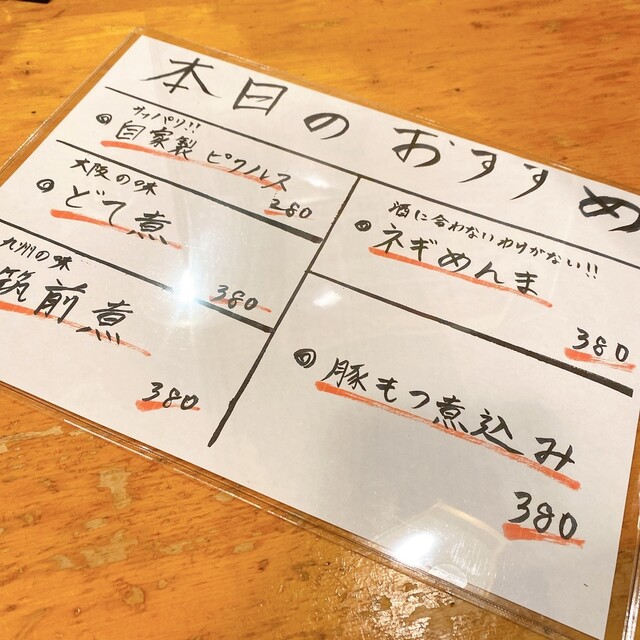 本日のおすすめ
サッパリ!!
自家製 ピクルス
280
大阪の味
どて煮
380
九州の味
筑前煮
380
酒に合わないわけがない!!
ネギめんま
380
豚もつ煮込み
380